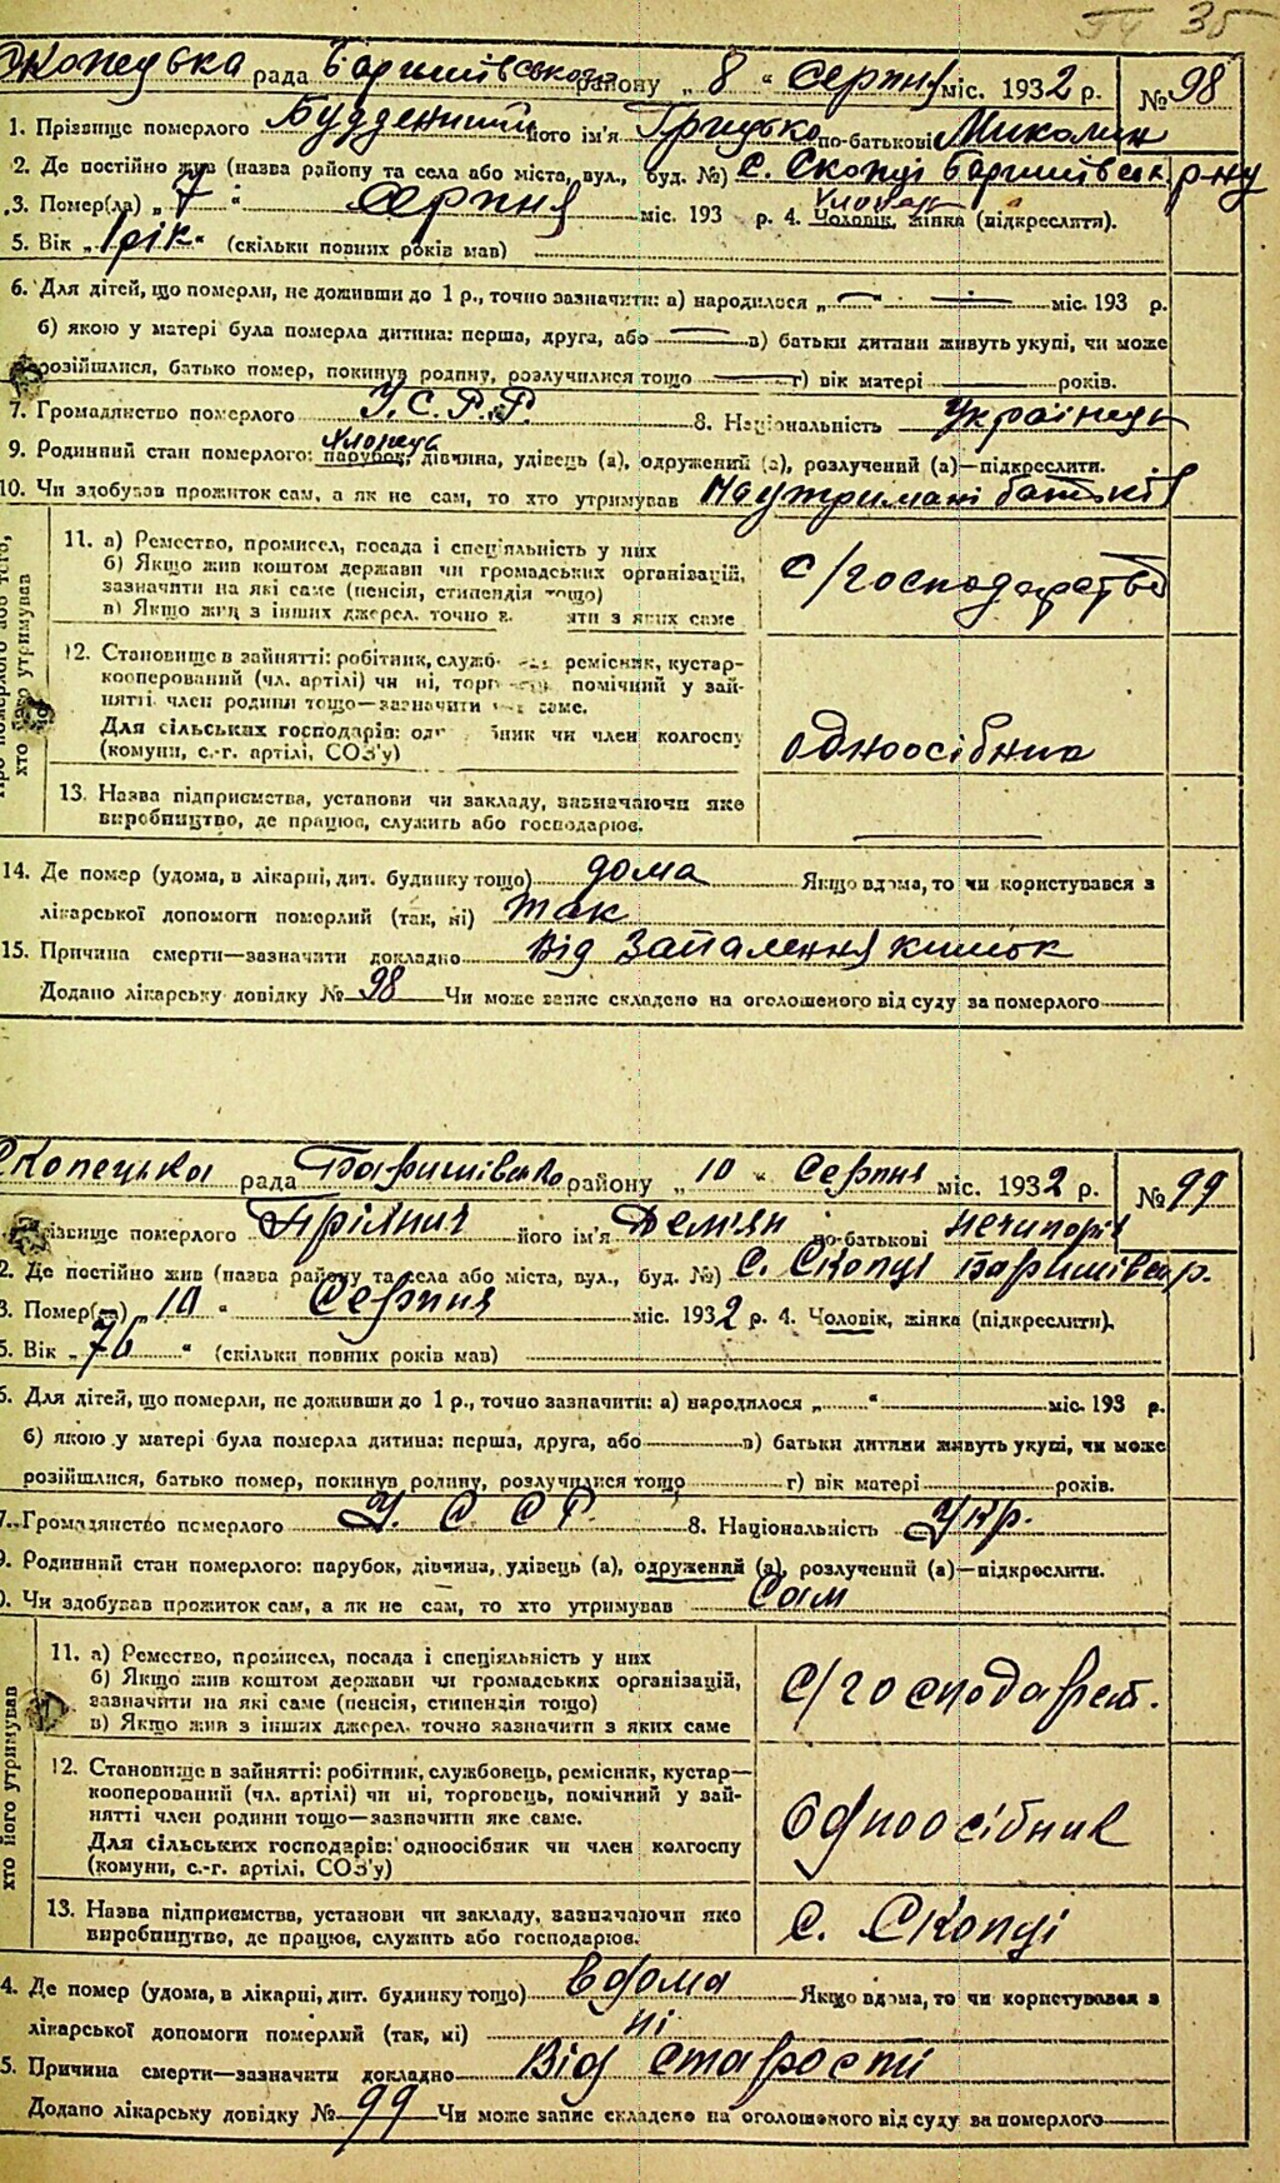 35
Скопецька рада Баришівського району „ 8 “ Серпня міс. 1932 р. № 98
1. Прізвище померлого Будденний його ім'я Грицько по-батькові Миколин
2. Де постійно жив (назва району та села або міста, вул., буд. №) С. Скопці Баришівськ. р-ну
3. Помер(ла) „ 7 “ Серпня міс. 193 р. 4. Чоловік, жінка (підкреслити).
5. Вік „ 1 рік “ (скільки повних років мав)
6. Для дітей, що померли, не доживши до 1 р., точно зазначити: а) народилося „ — “ — міс. 193 р.
б) якою у матері була померла дитина: перша, друга, або — в) батьки дитини живуть укупі, чи може
розійшлися, батько помер, покинув родину, розлучилися тощо — г) вік матері — років.
7. Громадянство померлого У.С.Р.Р. 8. Національність Українець
хлопець
9. Родинний стан померлого: парубок, дівчина, удівець (а), одружений (а), розлучений (а)—підкреслити.
10. Чи здобував прожиток сам, а як не сам, то хто утримував На утримані батьків
хто його утримував
11. а) Ремество, промисел, посада і спец'яльність у них
б) Якщо жив коштом держави чи громадських організацій,
зазначити на які саме (пенсія, стипендія тощо)
в) Якщо жив з інших джерел. точно з яти з яких саме
с/господарство
12. Становище в зайнятті: робітник, служб ремісник, кустар-
кооперований (чл. артілі) чи ні, торг помічний у зай-
нятті член родини тощо—зазначити саме.
Для сільських господарів: од бник чи член колгоспу
(комуни, с.-г. артілі, СОЗ'у)
одноосібник
13. Назва підприємства, установи чи закладу, зазначаючи яке
виробництво, де працює, служить або господарює.
14. Де помер (удома, в лікарні, дит. будинку тощо) дома Якщо вдома, то чи користувався з
лікарської допомоги померлий (так, ні) так
15. Причина смерти—зазначити докладно Від Запалення кишок
Додано лікарську довідку № 98 Чи може запис складено на оголошеного від суду за померлого
Скопецька рада Баришівсько району „ 10 “ Серпня міс. 1932 р. № 99
Прізвище померлого Прілипя його ім'я Дем'ян по-батькові нечипорів
2. Де постійно жив (назва району та села або міста, вул., буд. №) С. Скопці Баришівськ р.
3. Помер(ла) „ 10 “ Серпня міс. 1932 р. 4. Чоловік, жінка (підкреслити).
5. Вік „ 76 “ (скільки повних років мав)
6. Для дітей, що померли, не доживши до 1 р., точно зазначити: а) народилося „ “ міс. 193 р.
б) якою у матері була померла дитина: перша, друга, або в) батьки дитини живуть укупі, чи може
розійшлися, батько помер, покинув родину, розлучилися тощо г) вік матері років.
7. Громадянство померлого У. С С Р. 8. Національність Укр.
9. Родинний стан померлого: парубок, дівчина, удівець (а), одружений (а), розлучений (а)—підкреслити.
0. Чи здобував прожиток сам, а як не сам, то хто утримував Сам
хто його утримував
11. а) Ремество, промисел, посада і спеціяльність у них
б) Якщо жив коштом держави чи громадських організацій,
зазначити на які саме (пенсія, стипендія тощо)
в) Якщо жив з інших джерел. точно зазначити з яких саме
С/господарст.
12. Становище в зайнятті: робітник, службовець, ремісник, кустар—
кооперований (чл. артілі) чи ні, торговець, помічний у зай-
нятті член родини тощо—зазначити яке саме.
Для сільських господарів: одноосібник чи член колгоспу
(комуни, с.-г. артілі, СОЗ'у)
Одноосібник
13. Назва підприємства, установи чи закладу, зазначаючи яке
виробництво, де працює, служить або господарює.
С. Скопці
4. Де помер (удома, в лікарні, дит. будинку тощо) вдома Якщо вдома, то чи користувався з
лікарської допомоги померлий (так, ні) ні
5. Причина смерти—зазначити докладно Від старости
Додано лікарську довідку № 99 Чи може запис складено на оголошеного від суду за померлого